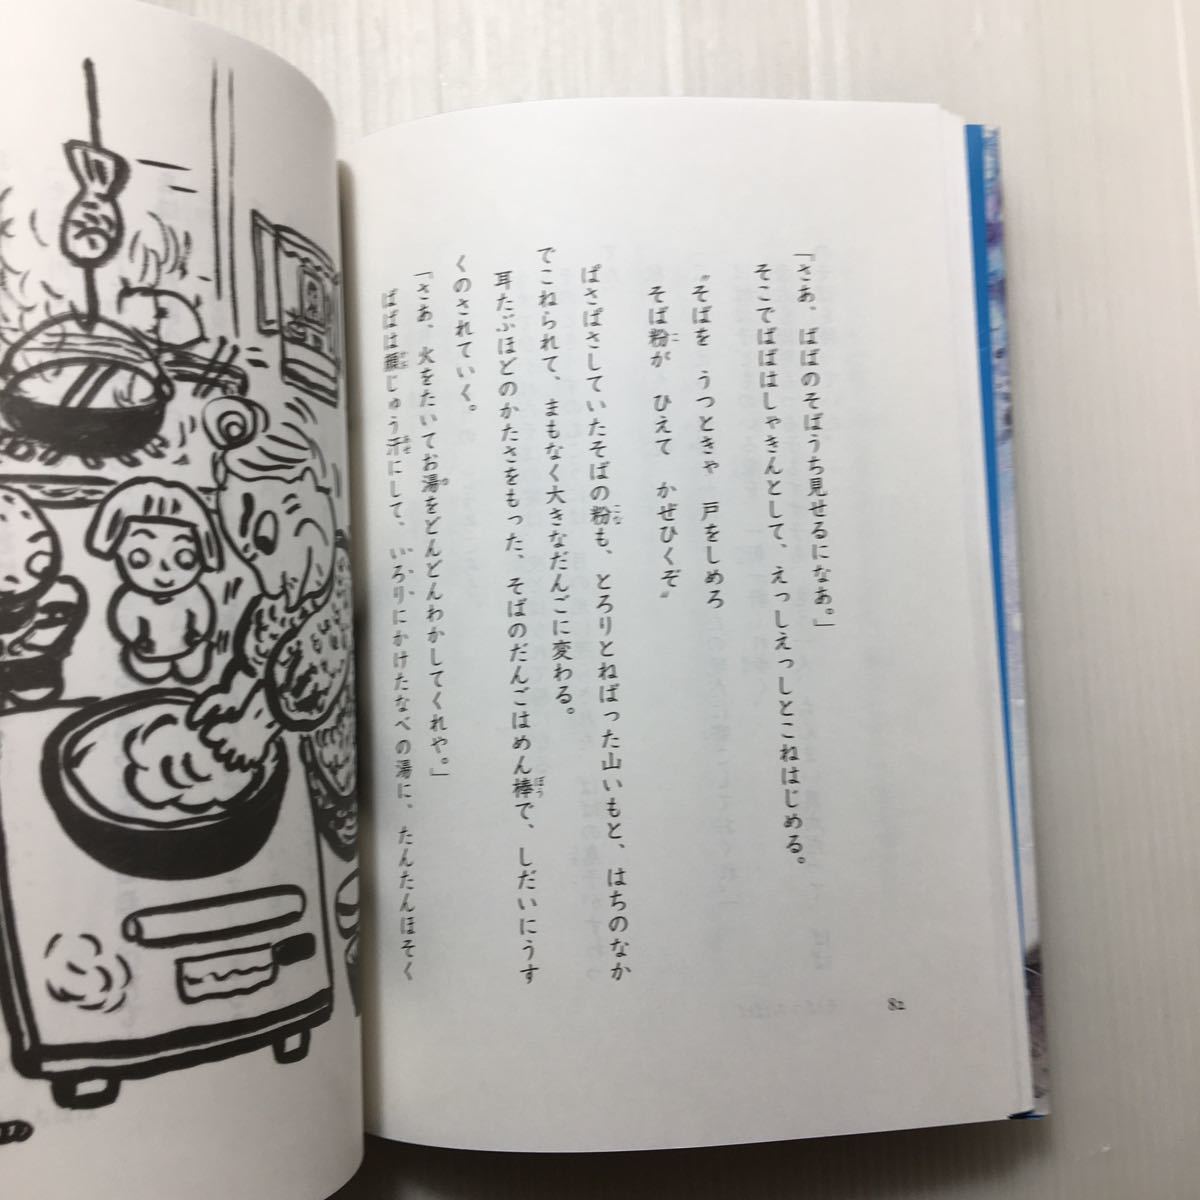 「さあ、ばばのそばうち見せるになあ。」
そこでばばはしゃきんとして、えっしえっしとこねはじめる。
〝そばを　うつときゃ　戸をしめろ
そば粉が　ひえて　かぜひくぞ〟
ぱさぱさしていたそばの粉も、とろりとねばった山いもと、はちのなか
でこねられて、まもなく大きなだんごに変わる。
耳たぶほどのかたさをもった、そばのだんごはめん棒で、しだいにうす
くのされていく。
「さあ、火をたいてお湯をどんどんわかしてくれや。」
ばばは顔じゅう汗にして、いろりにかけたなべの湯に、たんたんほそく
82